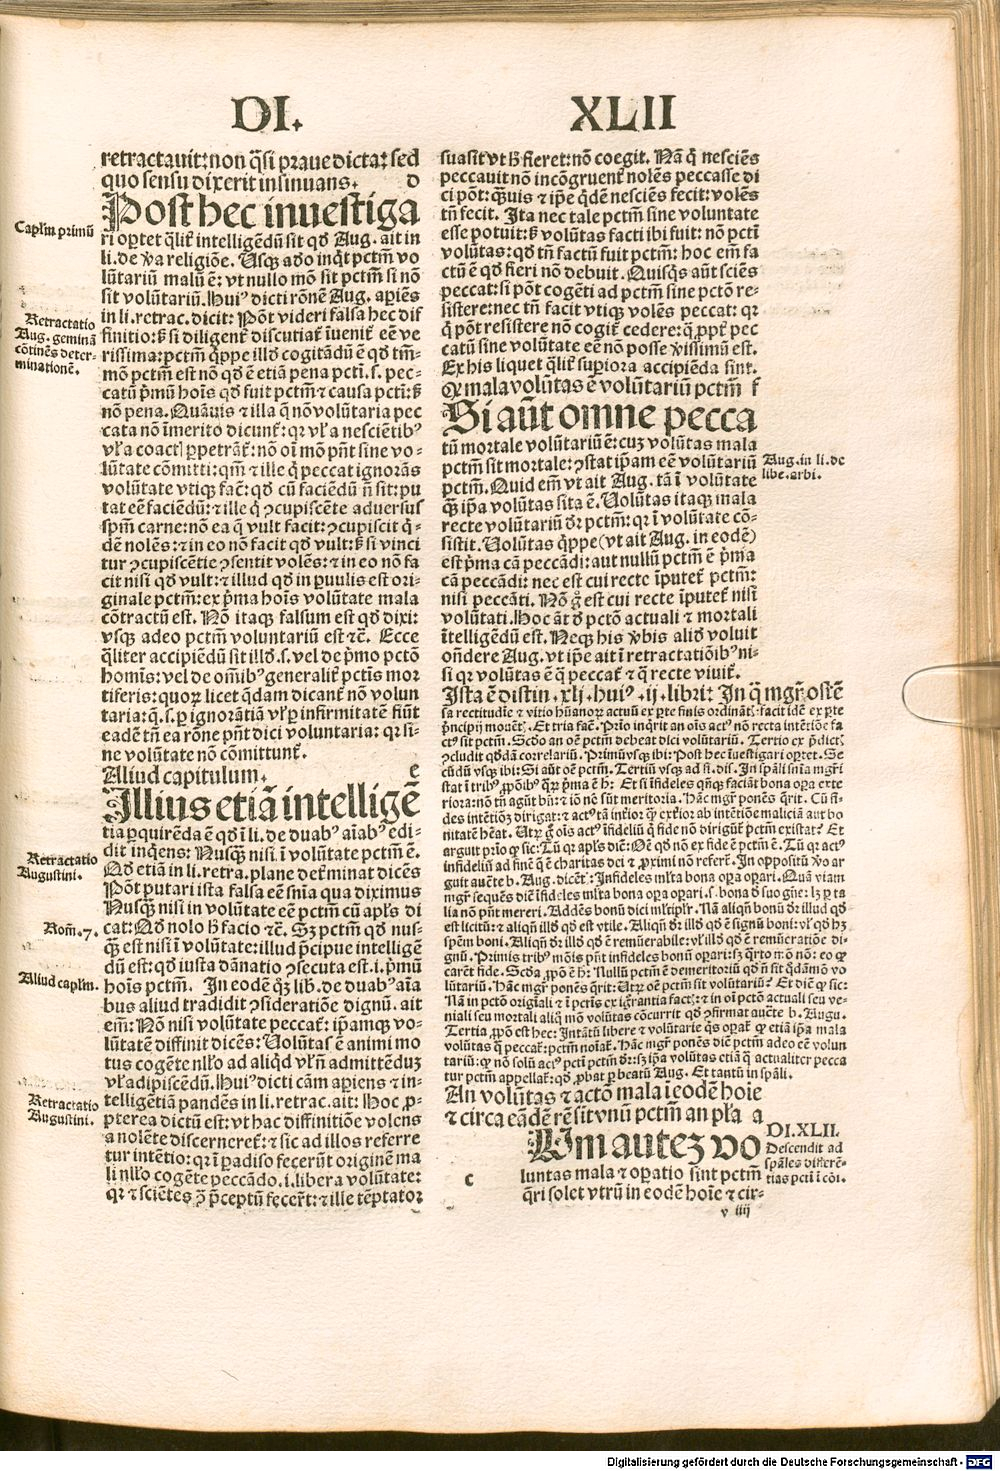 DI.
XLII
retractauit: non q̄si praue dicta: sed
quo sensu dixerit insinuans. D
Post hec inuestiga
Caplm̄ primū
ri oꝑtet q̄lit̄ intelligēdū sit qd̓ Aug. ait in
li. de v̄a religiōe. Usq; adeo inq̄t pctm̄ vo
lūtariū malū ē: vt nullo mō sit pctm̄ si nō
sit volūtariū. Huiꝰ dicti rōnē Aug. aꝑiēs
in li. retrac. dicit: Pōt videri falsa hec dif
Retractatio
Aug. geminā
cōtinēs deter-
minationē.
finitio: sꝫ si diligent̄ discutiat̄ īuenit̄ eē ve
rissima: pctm̄ q̄ppe illd̓ cogitādū ē qd̓ tm̄-
mō pctm̄ est nō qd̓ ē etiā pena pcti. s. pec-
catū p̄mū hoīs qd̓ fuit pctm̄ ⁊ causa pcti: sꝫ
nō pena. Quāuis ⁊ illa q̄ nō volūtaria pec
cata nō īmerito dicunt̄: qꝛ vl̓ a nesciētibꝰ
vl̓ a coactꝭ ꝑpetrāt̄: nō oī mō pn̄t sine vo-
lūtate cōmitti: qm̄ ⁊ ille q̄ peccat ignorās
voluntate vtiq; fac̄: qd̓ cū faciēdū n̄ sit: pu
tat eē faciēdū: ⁊ ille q̄ ꝯcupiscēte aduersus
spm̄ carne: nō ea q̄ vult facit: ꝯcupiscit q̄-
dē nolēs: ⁊ in eo nō facit qd̓ vult: sꝫ si vinci
tur ꝯcupiscētie ꝯsentit volēs: ⁊ in eo nō fa
cit nisi qd̓ vult: ⁊ illud qd̓ in ꝑuulis est ori-
ginale pctm̄: ex p̄ma hoīs volūtate mala
cōtractū est. Nō itaq; falsum est qd̓ dixi:
vsq; adeo pctm̄ voluntariū est ⁊c̄. Ecce
q̄liter accipiēdū sit illd̓. s. vel de p̄mo pctō
homīs: vel de om̄ibꝰ generalit̄ pctis mor
tiferis: quoꝝ licet q̄dam dicant̄ nō volun
taria: q̄. s. ꝑ ignorātiā vl̓ ꝑ infirmitatē fiūt
eadē tn̄ ea rōne pn̄t dici voluntaria: qꝛ si-
ne volūtate nō cōmittunt̄.
Aliud capitulum. e
Illius etiā intelligē
tia ꝑquirēda ē qd̓ ī li. de duabꝰ aīabꝰ edi-
Retractatio
Augustini.
dit inq̄ens: Nusq̄ꝫ nisi ī volūtate pctm̄ ē.
Qd̓ etiā in li. retra. plane det̄minat dicēs
Pōt putari ista falsa eē sn̄ia qua diximus
Nusq̄ꝫ nisi in voluntate eē pctm̄ cū apl̓s di
Rom̄. 7.
cat: Qd̓ nolo h̄ facio ⁊c̄. Sꝫ pctm̄ qd̓ nus-
q̄ꝫ est nisi ī volūtate: illud p̄cipue intelligē
dū est: qd̓ iusta dānatio ꝯsecuta est. i. p̄mū
Aliud caplm̄.
hoīs pctm̄. In eodē q̄ꝫ lib. de duabꝰ aīa
bus aliud tradidit ꝯsideratiōe dignū. ait
em̄: Nō nisi volūtate peccat̄: ip̄amq; vo-
lūtatē diffinit dicēs: Volūtas ē animi mo
tus cogēte nl̓lo ad aliqd̓ vl̓ n̄ admittēduꝫ
vl̓ adipiscēdū. Huiꝰ dicti cām aꝑiens ⁊ in-
Retractatio
Augustini.
telligētiā pandēs in li. retrac. ait: Hoc ꝓ-
pterea dictū est: vt hac diffinitiōe volens
a nolēte discerneret̄: ⁊ sic ad illos referre
tur intētio: qꝛ ī ꝑadiso fecerūt originē ma
li nl̓lo cogēte peccādo. i. libera volūtate:
qꝛ ⁊ sciētes ꝯ p̄ceptū fecer̄t: ⁊ ille tēptatoꝛ
suasit vt h̄ fieret: nō coegit. Nā q̄ nesciēs
peccauit nō incōgruent̄ nolēs peccasse di
ci pōt: q̄ꝫuis ⁊ ip̄e q̄dē nesciēs fecit: volēs
tn̄ fecit. Ita nec tale pctm̄ sine voluntate
esse potuit: sꝫ volūtas facti ibi fuit: nō pcti
volūtas: qd̓ tn̄ factū fuit pctm̄: hoc em̄ fa
ctū ē qd̓ fieri nō debuit. Quisq̄s aūt sciēs
peccat: si pōt cogēti ad pctm̄ sine pctō re-
sistere: nec tn̄ facit vtiq; volēs peccat: qꝛ
q̄ pōt resistere nō cogit̄ cedere: q̄ ꝓpt̄ pec
catū sine volūtate eē nō posse v̄issimū est.
Ex his liquet q̄lit̄ suꝑiora accipiēda sint.
Qꝙ mala volūtas ē volūtariū pctm̄ f
Si aūt omne pecca
tū mortale volūtariū ē: cuꝫ volūtas mala
Aug. in li. de
libe. arbi.
pctm̄ sit mortale: ꝯstat ip̄am eē volūtariū
pctm̄. Quid em̄ vt ait Aug. tā ī volūtate
q̄ꝫ ip̄a volūtas sita ē. Volūtas itaq; mala
recte voluntariū dꝛ pctm̄: qꝛ ī volūtate cō-
sistit. Volūtas q̄ppe (vt ait Aug. in eodē)
est p̄ma cā peccādi: aut nullū pctm̄ ē p̄ma
cā peccādi: nec est cui recte īputet̄ pctm̄:
nisi peccāti. Nō g̊ est cui recte īputet̄ nisi
volūtati. Hoc āt d̓ pctō actuali ⁊ mortali
ītelligēdū est. Neq; his v̄bis aliō voluit
on̄dere Aug. vt ip̄e ait ī retractatiōibꝰ ni-
si qꝛ voluntas ē q̄ peccat̄ ⁊ q̄ recte viuit̄.
Ista ē distin. xli. huiꝰ. ij. libri: In q̄ mgr̄ ostē
sa rectitudīe ⁊ vitio hūanoꝝ actuū ex ꝑte finis ordinātꝭ: facit idē ex ꝑte
p̄ncipij mouētꝭ. Et tria fac̄. Prīo inq̄rit an oīs actꝰ nō recta intētiōe fa
ctꝰ sit pctm̄. Scd̓o an oē pctm̄ debeat dici volūtariū. Tertio ex p̄dictꝭ
ꝯcludit qd̓dā correlariū. Primū vsq; ibi: Post hec īuestigari oꝑtet. Se
cūdū vsq; ibi: Si aūt oē pctm̄. Tertiū vsq; ad fi. dis. In sp̄ali sn̄ia mgr̄i
stat ī tribꝰ ꝓpōibꝰ q̄ꝝ p̄ma ē h: Et si īfideles qn̄q; faciāt bona oꝑa exte
riora: nō tn̄ agūt bn̄: ⁊ iō nō sūt meritoria. Hāc mgr̄ ponēs q̄rit. Cū fi-
des intētiōꝫ dirigat: ⁊ actꝰ tā int̄ior q̄ꝫ ext̄ior ab intētiōe maliciā aut bo
nitatē hēat. Utꝝ g̊ oīs actꝰ īfideliū q̄ fide nō dirigūt̄ pctm̄ existat? Et
arguit prīo ꝙ sic: Tū qꝛ apl̓s dic̄: Oē qd̓ nō ex fide ē pctm̄ ē. Tū qꝛ actꝰ
infideliū ad finē q̄ ē charitas dei ⁊ ꝓximi nō referē. In oppositū v̄o ar
guit aucte b. Aug. dicēt̄: Infideles ml̓ta bona oꝑa oꝑari. Quā viam
mgr̄ sequēs dic̄ īfideles ml̓ta bona oꝑa oꝑari. s. bona d̓ suo gn̄e: lꝫ ꝑ ta
lia nō pn̄t mereri. Addēs bonū dici ml̓tiplr̄. Nā aliqn̄ bonū dꝛ illud qd̓
est licitū: ⁊ aliqn̄ illd̓ qd̓ est vtile. Aliqn̄ dꝛ illd̓ qd̓ ē signū boni: vl̓ qd̓ hꝫ
spēm boni. Aliqn̄ dꝛ illd̓ qd̓ ē remūerabile: vl̓ illd̓ qd̓ ē remūeratiōe di-
gnū. Primis tribꝰ mōis pn̄t infideles bonū oꝑari: sꝫ q̄rto mō nō: eo ꝙ
carēt fide. Scd̓a ꝓpō ē h: Nullū pctm̄ ē demeritoriū qd̓ n̄ sit q̄dāmō vo
lūtariū. Hāc mgr̄ ponēs q̄rit: Utꝝ oē pctm̄ sit volūtariū? Et dic̄ ꝙ sic:
Nā in pctō origīali ⁊ ī pctis ex ignrantia factꝭ: ⁊ in oī pctō actuali seu ve-
niali seu mortali aliq̄ mō volūtas cōcurrit qd̓ ꝯfirmat aucte b. Augu.
Tertia ꝓpō est hec: In tātū libere ⁊ volūtarie q̄s oꝑat̄ ꝙ etiā ip̄a mala
volūtas q̄ peccat̄: pctm̄ noīat̄. Hāc mgr̄ ponēs dic̄ pctm̄ adeo eē volun
tariū: ꝙ nō solū actꝰ pcti pctm̄ dꝛ: sꝫ ip̄a volūtas etiā q̄ actualiter pecca
tur pctm̄ appellat̄: qd̓ ꝓbat ꝑ beatū Aug. Et tantū in sp̄ali.
An volūtas ⁊ actō mala ī eodē hoīe
⁊ circa eādē rē sit vnū pctm̄ an pl̓a a
DI. XLII.
Descendit ad
sp̄ales differē-
tias pcti ī cōi.
c
Um autez vo
luntas mala ⁊ oꝑatio sint pctm̄
q̄ri solet vtrū in eodē hoīe ⁊ cir-
v iiij
Digitalisierung gefördert durch die Deutsche Forschungsgemeinschaft - DFG